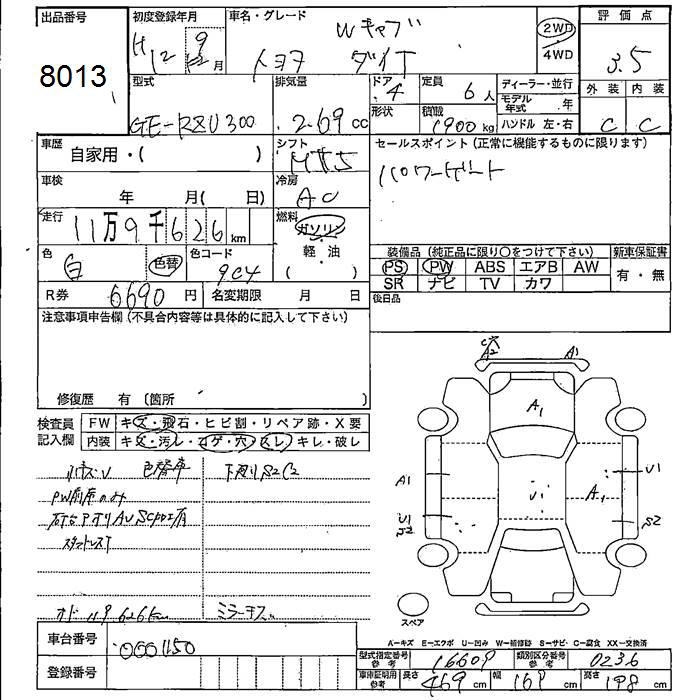 出品番号 8013
初度登録年月 H12年9月
車名・グレード Wキャブ
トヨタ ダイナ
2WD
4WD
評価点 3.5
外装 C 内装 C
型式 GE-RZU300
排気量 2.69cc
ドア 4
形状
定員 6人
積載 1900kg
ディーラー・並行
モデル年式 年
ハンドル 左・右
車歴 自家用・( )
シフト
セールスポイント(正常に機能するものに限ります)
パワーゲート
車検 年 月( 日)
冷房 AC
走行 11万9千626km
燃料 ガソリン
軽・油
( )
色 白 色替
色コード 9C4
装備品(純正品に限り〇をつけて下さい)
新車保証書
PS PW ABS エアB AW
有・無
SR ナビ TV カワ
R券 6690円
名変期限 月 日
後日品
注意事項申告欄(不具合内容等は具体的に記入して下さい)
修復歴 有 〔箇所
検査員記入欄
FW キズ・飛石・ヒビ割・リペア跡・X要
内装 キズ・汚レ・コゲ・穴・スレ・キレ・破レ
色替車
下廻りS2C2
PW前席のみ
オドー119626km
A2 A1
A1
A1 U1 A1 U1
U1 S2
S2
スペア
A―キズ E―エクボ U―凹み W―補修跡 S―サビ・C―腐食 XX―交換済
車台番号 0001150
登録番号
型式指定番号 参考 16609
類別区分番号 参考 0236
車庫証明用 参考 長さ 469cm 幅 169cm 高さ 198cm